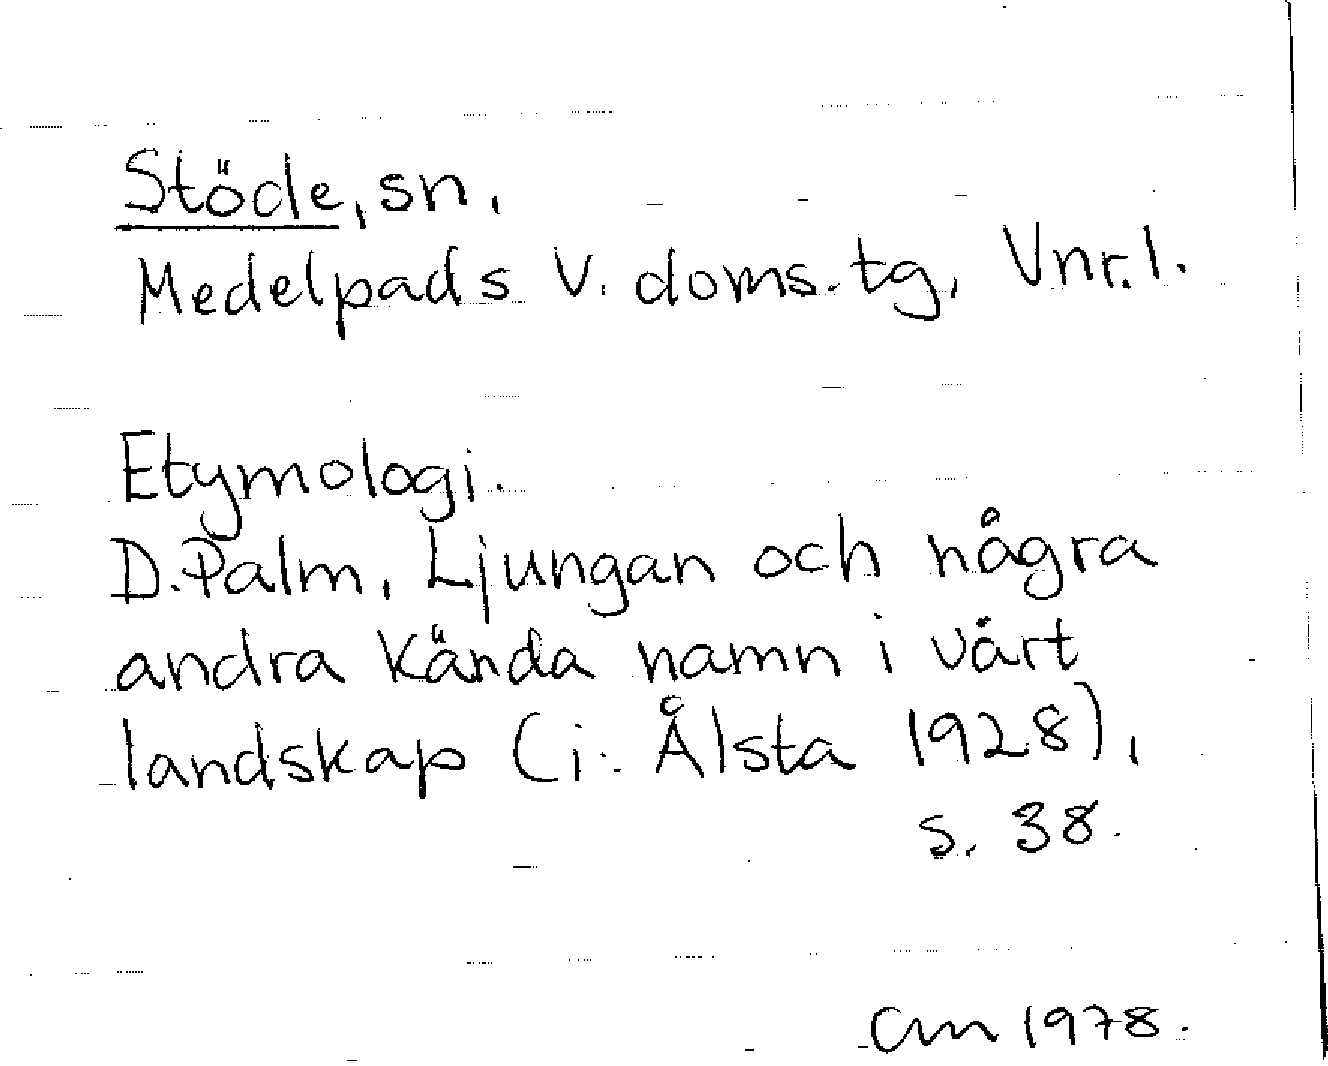 Stöde, sn.
Medelpads V. doms.tg, Vnr.l.
Etymologi.
D. Palm, Ljungan och några
andra kända namn i vårt
landskap (i: Ålsta 1928),
s. 38.
Cm 1978.